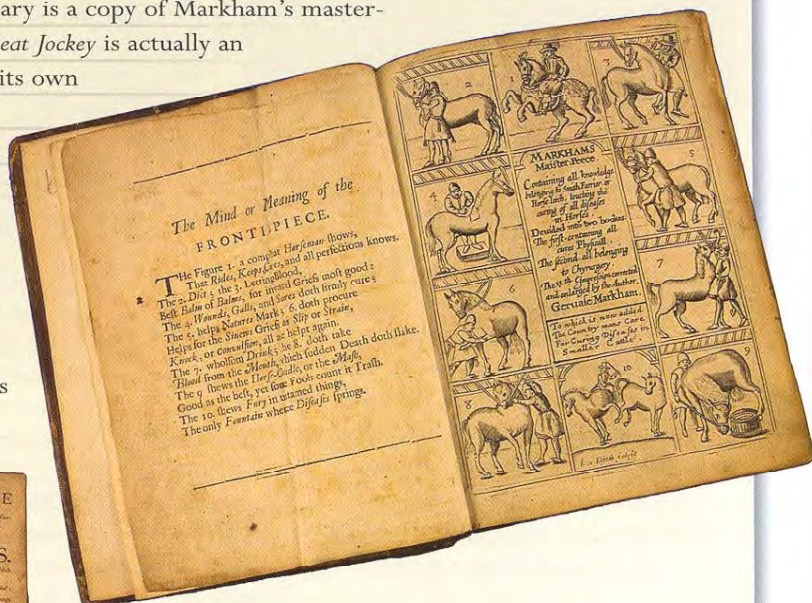 ary is a copy of Markham's master-
eat Jockey is actually an
its own
s
The Mind or Meaning of the
FRONTIPIECE.
THe Figure 1. a complat Horseman shows,
That Rides, Keeps, Cures, and all perfections knows.
The 2. Diet; the 3. LettingBlood,
Best Balm of Balms, for inward Griefs most good:
The 4. Wounds, Galls, and Sores doth firmly cure;
The 5. helps Natures Mark; 6. doth procure
Helps for the Sinews Griefs as Slip or Strain,
Knock, or Convulsion, all as helpt again.
The 7. wholsom Drink; the 8. doth take
Blood from the Mouth, which sudden Death doth slake.
The 9 shews the Horse-Caudle, or the Mash,
Good as the best, yet some Fools count it Trash.
The 10. shews Fury in untamed things,
The only Fountain where Diseases springs.
2
1
3
4
5
6
7
8
10
9
MARKHAMS
Maister-Peece
Containing all knowledge
belonging to Smith, Farrier, or
Horse leech, touching the
curing of all diseases
in Horses
Devided into two bookes
The first containing all
cures Physicall.
The second all belonging
to Chyrurgery.
and enlarged by the Author.
Gervaise Markham.
To which is now added
The Country mans Care
For Curing Diseases in
Smaller Cattle
E
S.